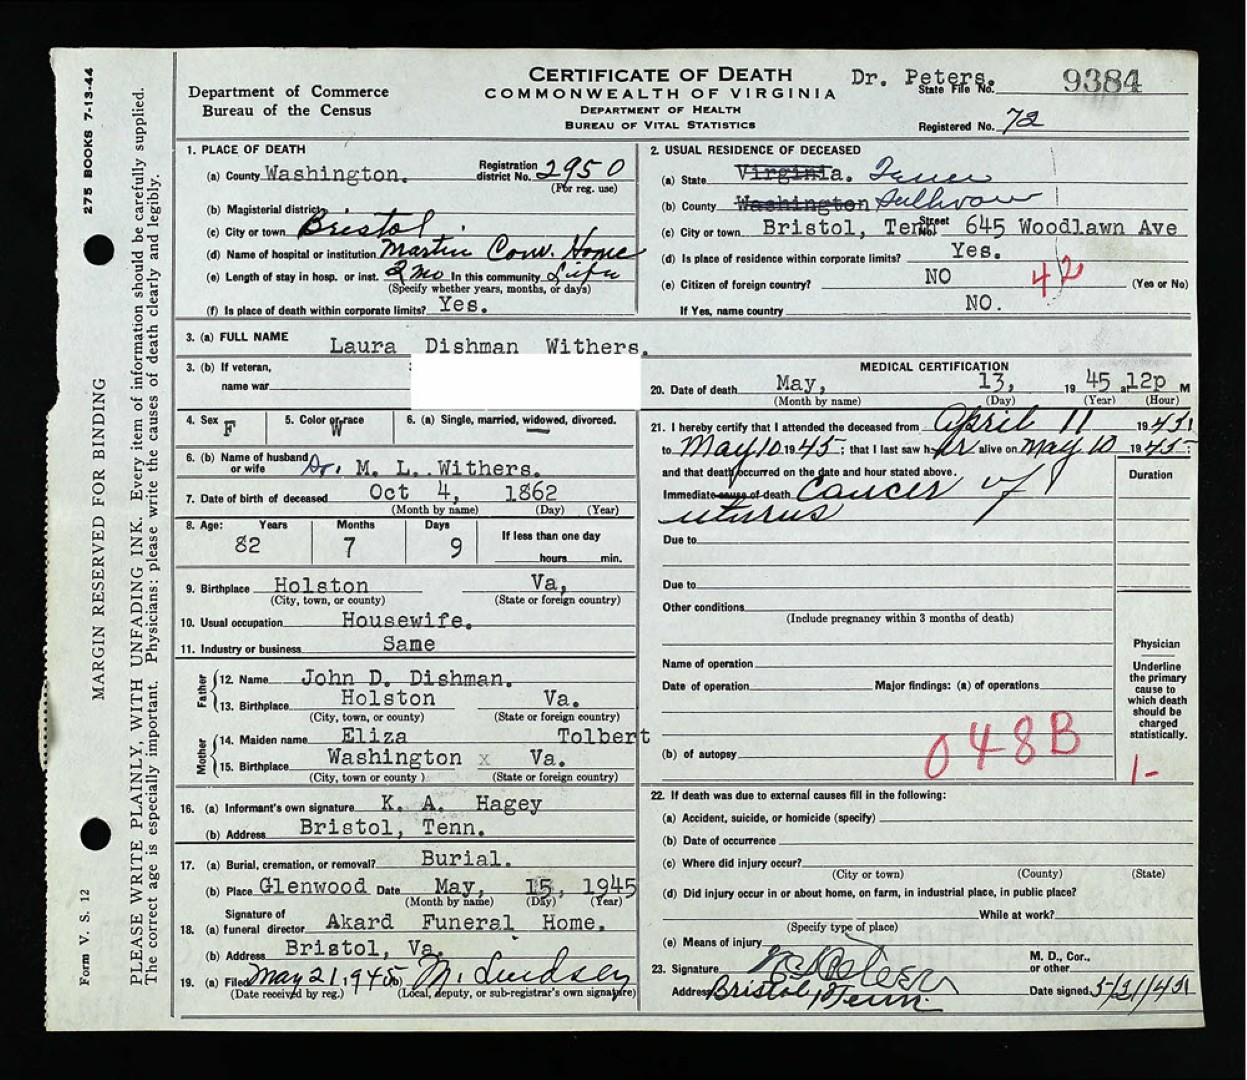 275 BOOKS 7-13-44
MARGIN RESERVED FOR BINDING
Form V. S. 12
PLEASE WRITE PLAINLY, WITH UNFADING INK. Every item of information should be carefully supplied.
The correct age is especially important. Physicians: please write the causes of death clearly and legibly.
Department of Commerce
Bureau of the Census
CERTIFICATE OF DEATH
COMMONWEALTH OF VIRGINIA
DEPARTMENT OF HEALTH
BUREAU OF VITAL STATISTICS
Dr. Peters.
State File No. 9384
Registered No. 72
1. PLACE OF DEATH
(a) County Washington. Registration district No. 2950
(For reg. use)
(b) Magisterial district
(c) City or town Bristol
(d) Name of hospital or institution Martin Conv. Home
(e) Length of stay in hosp. or inst. 2 mo In this community Life
(Specify whether years, months, or days)
(f) Is place of death within corporate limits? Yes.
2. USUAL RESIDENCE OF DECEASED
(a) State Virginia. Tenn
(b) County Washington Sullivan
(c) City or town Bristol, Tenn Street No. 645 Woodlawn Ave
(d) Is place of residence within corporate limits? Yes.
(e) Citizen of foreign country? NO 42 (Yes or No)
If Yes, name country NO.
3. (a) FULL NAME Laura Dishman Withers.
3. (b) If veteran,
name war
4. Sex F 5. Color or race W 6. (a) Single, married, widowed, divorced.
6. (b) Name of husband or wife Dr. M. L. Withers.
7. Date of birth of deceased Oct 4, 1862
(Month by name) (Day) (Year)
8. Age: Years Months Days If less than one day
82 7 9 hours min.
9. Birthplace Holston Va,
(City, town, or county) (State or foreign country)
10. Usual occupation Housewife.
11. Industry or business Same
Father
12. Name John D. Dishman.
13. Birthplace Holston Va.
(City, town, or county) (State or foreign country)
Mother
14. Maiden name Eliza Tolbert
15. Birthplace Washington x Va.
(City, town or county ) (State or foreign country)
16. (a) Informant's own signature K. A. Hagey
(b) Address Bristol, Tenn.
17. (a) Burial, cremation, or removal? Burial.
(b) Place Glenwood Date May, 15, 1945
(Month by name) (Day) (Year)
18. Signature of
(a) funeral director Akard Funeral Home.
(b) Address Bristol, Va.
19. (a) Filed May 21, 1945 (b) M. Lindsey
(Date received by reg.) (Local, deputy, or sub-registrar's own signature)
MEDICAL CERTIFICATION
20. Date of death May, 13, 19 45 at 12p M
(Month by name) (Day) (Year) (Hour)
21. I hereby certify that I attended the deceased from April 11 1945,
to May 10 1945; that I last saw her alive on May 10 1945;
and that death occurred on the date and hour stated above. Duration
Immediate cause of death Cancer of
uturus
Due to
Due to
Other conditions
(Include pregnancy within 3 months of death)
Name of operation
Date of operation Major findings: (a) of operations
(b) of autopsy 048B
Physician
Underline
the primary
cause to
which death
should be
charged
statistically.
1-
22. If death was due to external causes fill in the following:
(a) Accident, suicide, or homicide (specify)
(b) Date of occurrence
(c) Where did injury occur?
(City or town) (County) (State)
(d) Did injury occur in or about home, on farm, in industrial place, in public place?
While at work?
(Specify type of place)
(e) Means of injury
23. Signature M. D., Cor., or other
Address Bristol, Tenn. Date signed 5/21/45